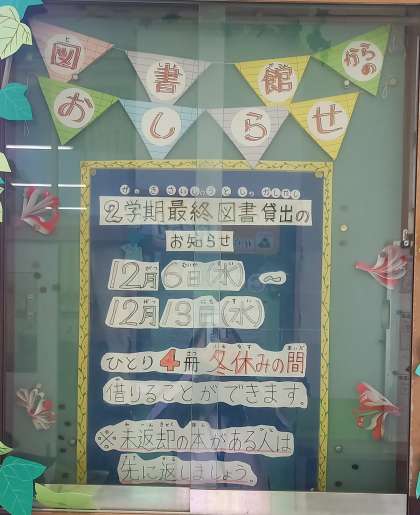 図書館からの
おしらせ
2学期最終図書貸出の
お知らせ
12月6日(水)~
12月13日(水)
ひとり4冊 冬休みの間
借りることができます。
※未返却の本がある人は
先に返しましょう。